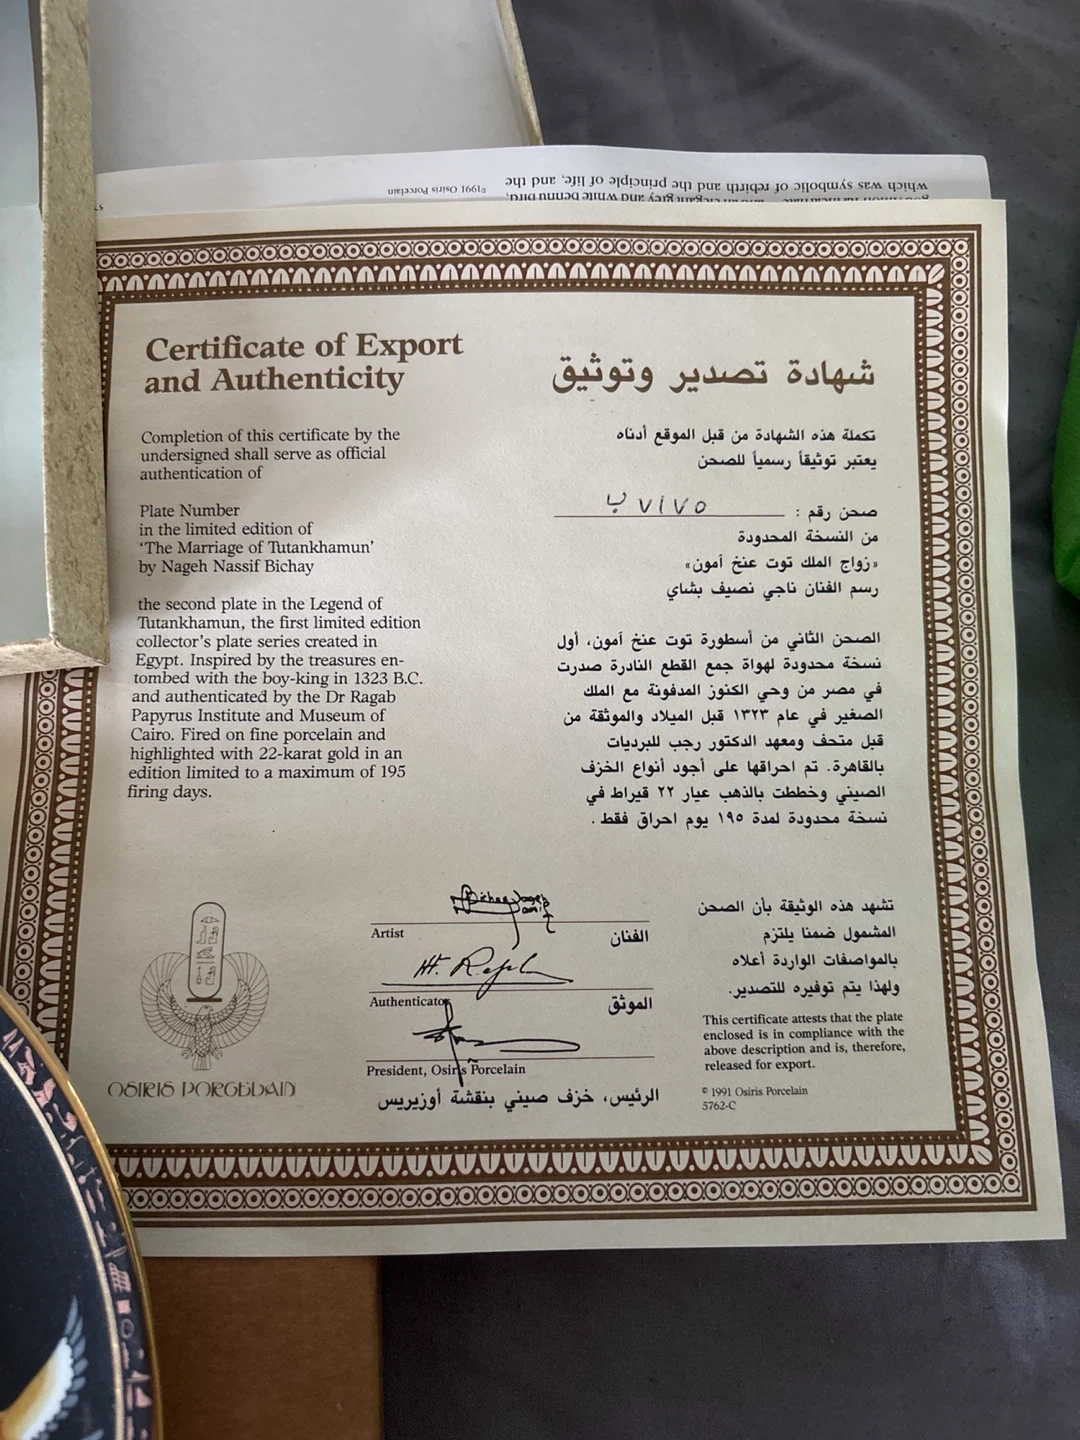 which was symbolic of rebirth and the principle of life, and the
©1991 Osiris Porcelain
Certificate of Export
and Authenticity
Completion of this certificate by the
undersigned shall serve as official
authentication of
Plate Number
in the limited edition of
‘The Marriage of Tutankhamun’
by Nageh Nassif Bichay
the second plate in the Legend of
Tutankhamun, the first limited edition
collector's plate series created in
Egypt. Inspired by the treasures en-
tombed with the boy-king in 1323 B.C.
and authenticated by the Dr Ragab
Papyrus Institute and Museum of
Cairo. Fired on fine porcelain and
highlighted with 22-karat gold in an
edition limited to a maximum of 195
firing days.
شهادة تصدير وتوثيق
تكملة هذه الشهادة من قبل الموقع أدناه
يعتبر توثيقاً رسمياً للصحن
صحن رقم : ب ٧١٧٥
من النسخة المحدودة
«زواج الملك توت عنخ آمون»
رسم الفنان ناجي نصيف بشاي
الصحن الثاني من أسطورة توت عنخ آمون، أول
نسخة محدودة لهواة جمع القطع النادرة صدرت
في مصر من وحي الكنوز المدفونة مع الملك
الصغير في عام ١٣٢٣ قبل الميلاد والموثقة من
قبل متحف ومعهد الدكتور رجب للبرديات
بالقاهرة. تم احراقها على أجود أنواع الخزف
الصيني وخططت بالذهب عيار ٢٢ قيراط في
نسخة محدودة لمدة ١٩٥ يوم احراق فقط .
OSIRIS PORCELAIN
Artist الفنان
Authenticator الموثق
President, Osiris Porcelain
الرئيس، خزف صيني بنقشة أوزيريس
تشهد هذه الوثيقة بأن الصحن
المشمول ضمنا يلتزم
بالمواصفات الواردة أعلاه
ولهذا يتم توفيره للتصدير.
This certificate attests that the plate
enclosed is in compliance with the
above description and is, therefore,
released for export.
© 1991 Osiris Porcelain
5762-C